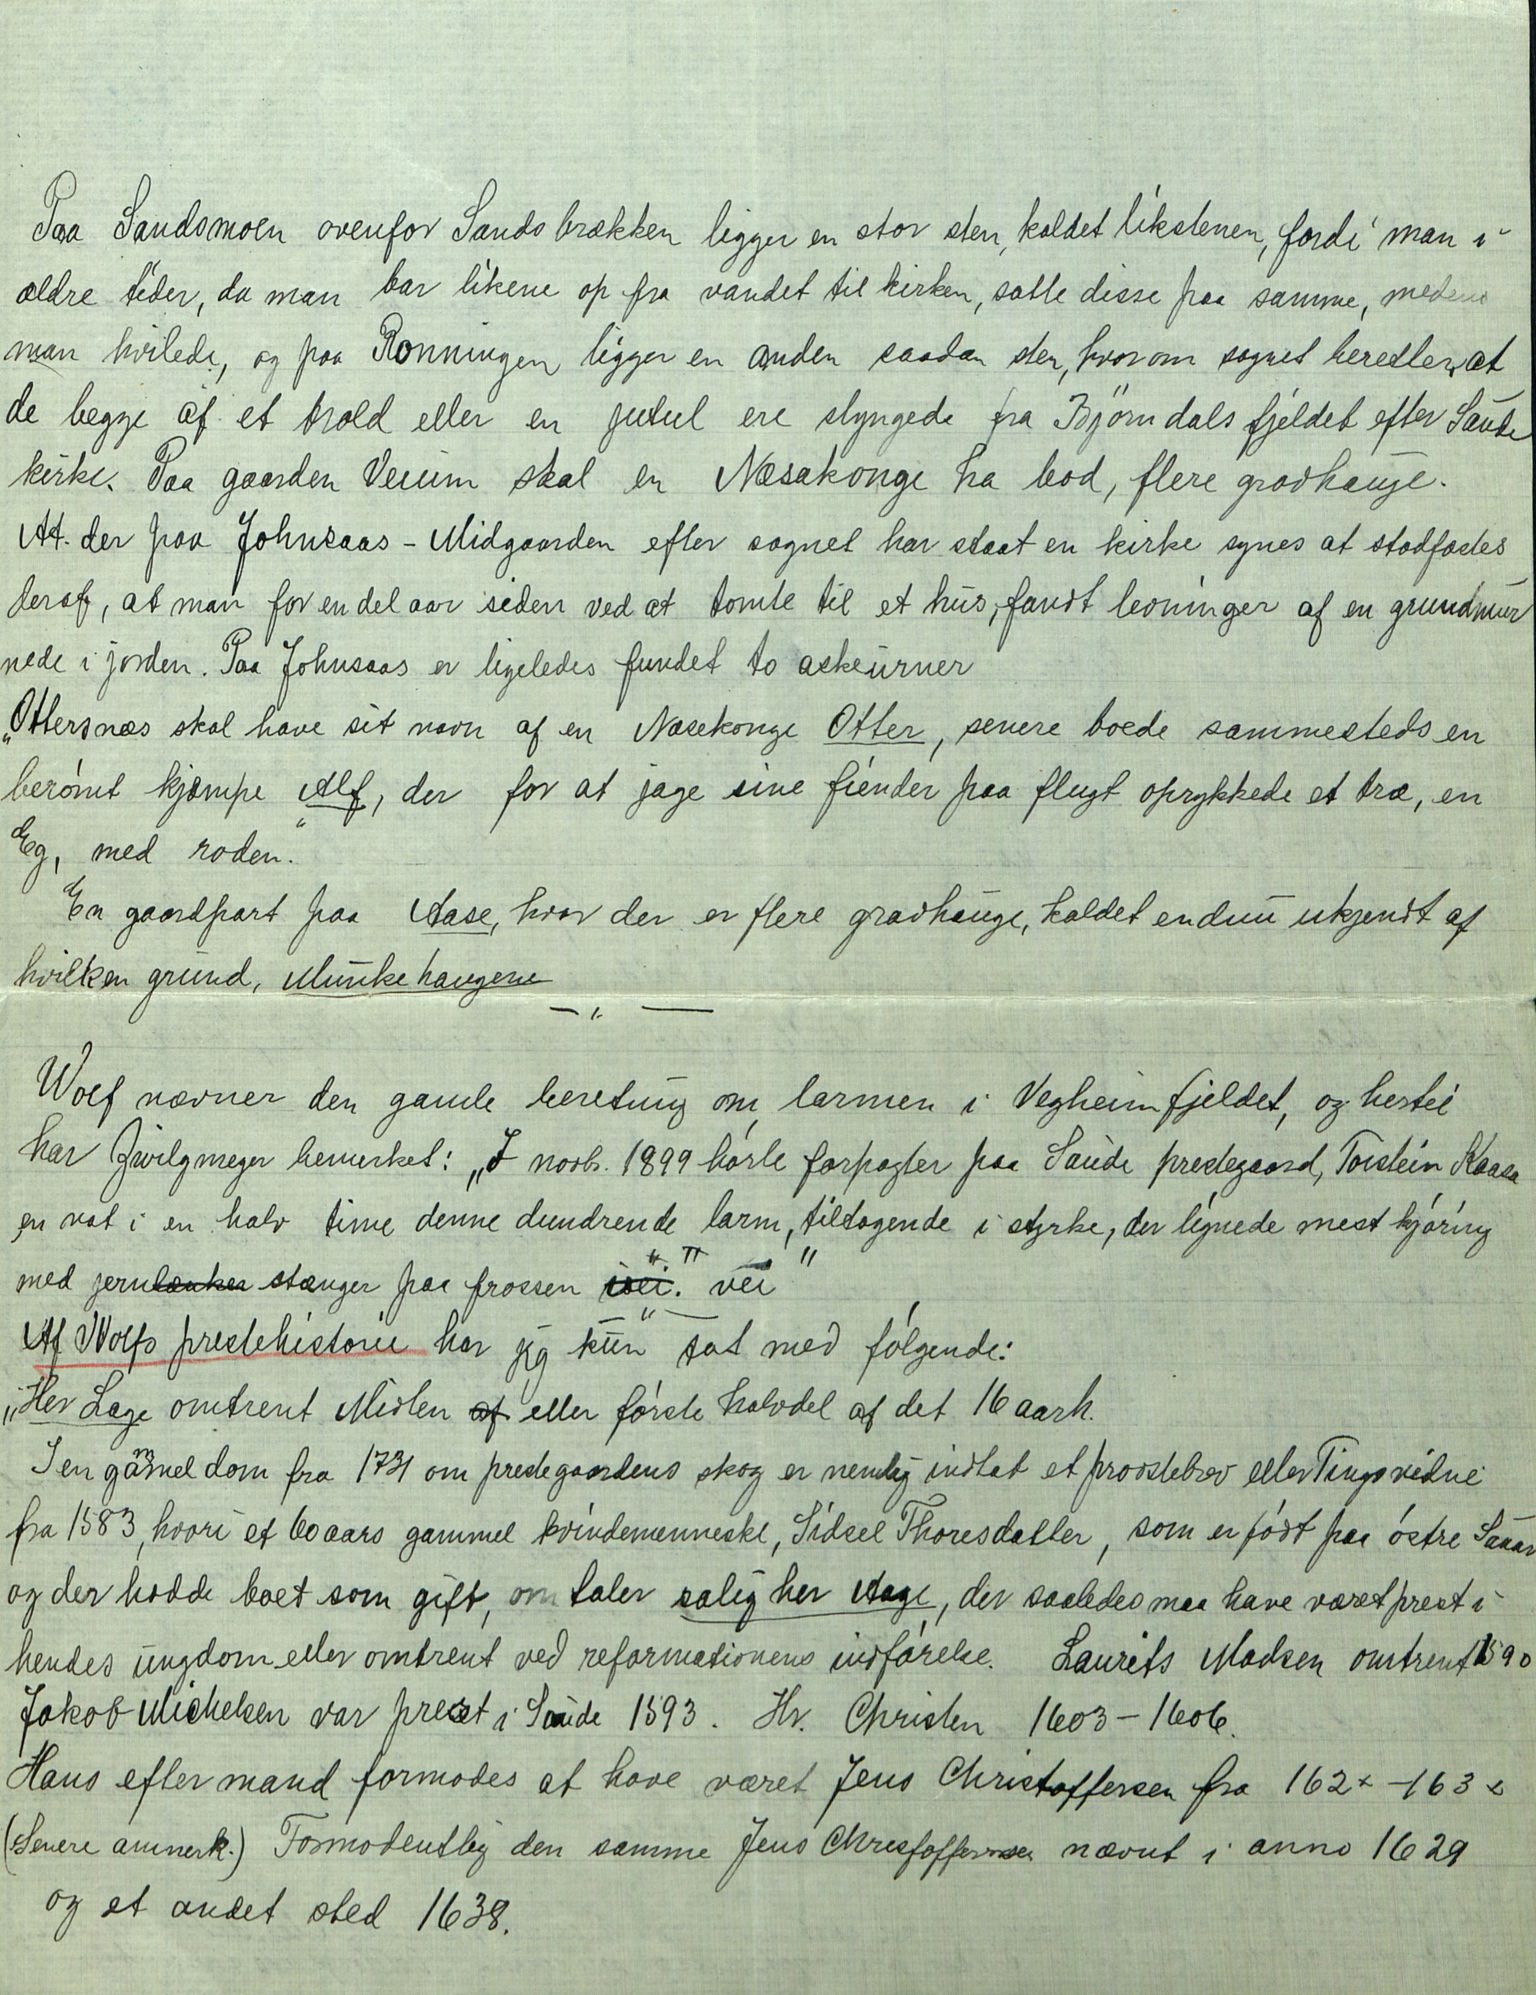 Paa Sandsmoen ovenfor Sandsbrækken ligger en stor sten, kaldet likstenen, fordi man i
ældre tider, da man bar likene op fra vandet til kirken, satte disse paa samme, medens
man hvilede, og paa Rønningen ligger en anden saadan sten, hvorom sagnet beretter, at
de begge af et trold eller en jutul ere slyngede fra Bjørndalsfjeldet efter Saude
kirke. Paa gaarden Veium skal en Næsakonge ha bod, flere gravhauge.
At der paa Johnsaas - Midgaarden efter sagnet har staat en kirke synes at stadfæstes
deraf, at man for en del aar siden ved at tomte til et hus, fandt levninger af en grundmur
nede i jorden. Paa Johnsaas er ligeledes fundet to askeurner
"Ottersnæs skal have sit navn af en Næsekonge Otter, senere boede sammesteds en
berømt kjæmpe Alf, der for at jage sine fiender paa flugt oprykkede et træ, en
Eg, med roden."
En gaardpart paa Aase, hvor der er flere gravhauge, kaldet endnu ukjendt af
hvilken grund, Munkehaugene
— " —
Wolf nævner den gamle beretning om larmen i Vegheimfjeldet, og hertil
har Zwilgmeyer bemerket: "I novb. 1899 hørte forpagter paa Saude prestegaard, Torstein Kaasa
en nat i en halv time denne dundrende larm, tiltagende i styrke, der lignede mest kjøring
med jernlænker stænger paa frossen vei. vei"
— " —
Af Wolfs prestehistorie har jeg kun tat med følgende:
"Her Lage omtrent Midten af eller første halvdel af det 16 aarh.
I en gammel dom fra 1731 om prestegaardens skog er nemlig indtat et provstebrev eller Tingsvidne
fra 1583, hvori et 60 aars gammel kvindemenneske, Sidsel Thoresdatter, som er født paa østre
og der hadde boet som gift, omtaler salig her Aage, der saaledes maa have været prest i
hendes ungdom eller omtrent ved reformationens indførelse. Laurits Madsen omtrent 1590
Jakob Michelsen var prest i Saude 1593. Hr. Christen 1603 - 1606.
Hans eftermand formodes at have været Jens Christoffersen fra 162x - 163x
(Senere anmerk.) Formodentlig den samme Jens Christoffersen nævnt i anno 1629
og et andet sted 1638.